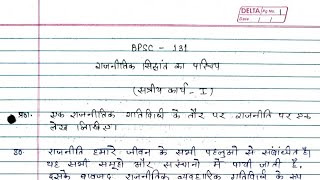 DELTA Pg No. 1
Date / /
BPSC - 131
राजनीतिक सिद्धांत का परिचय
(सत्रीय कार्य - I)
प्रश्न1. एक राजनीतिक गतिविधि के तौर पर राजनीति पर एक
लेख लिखिए।
उ0. राजनीति हमारे जीवन के सभी पहलुओं से संबंधित है।
यह सभी समूहों और संस्थानों में पायी जाती है,
इसके बावजूद राजनीतिक व्यवहारिक गतिविधि के रूप